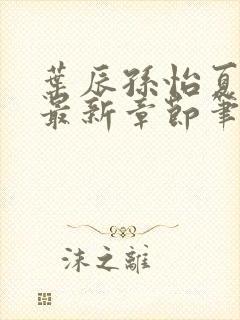 葉辰孫怡夏
最新章節筆
沫之離